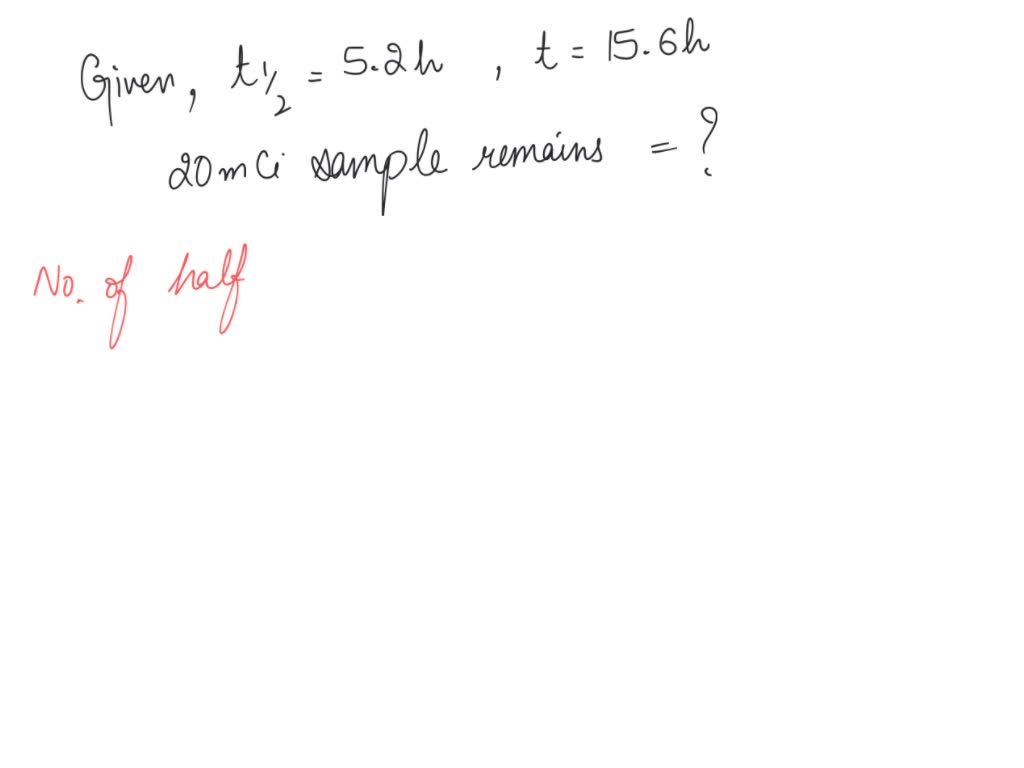 Given, t½ = 5.2h , t = 15.6h
20mCi sample remains = ?
No. of half